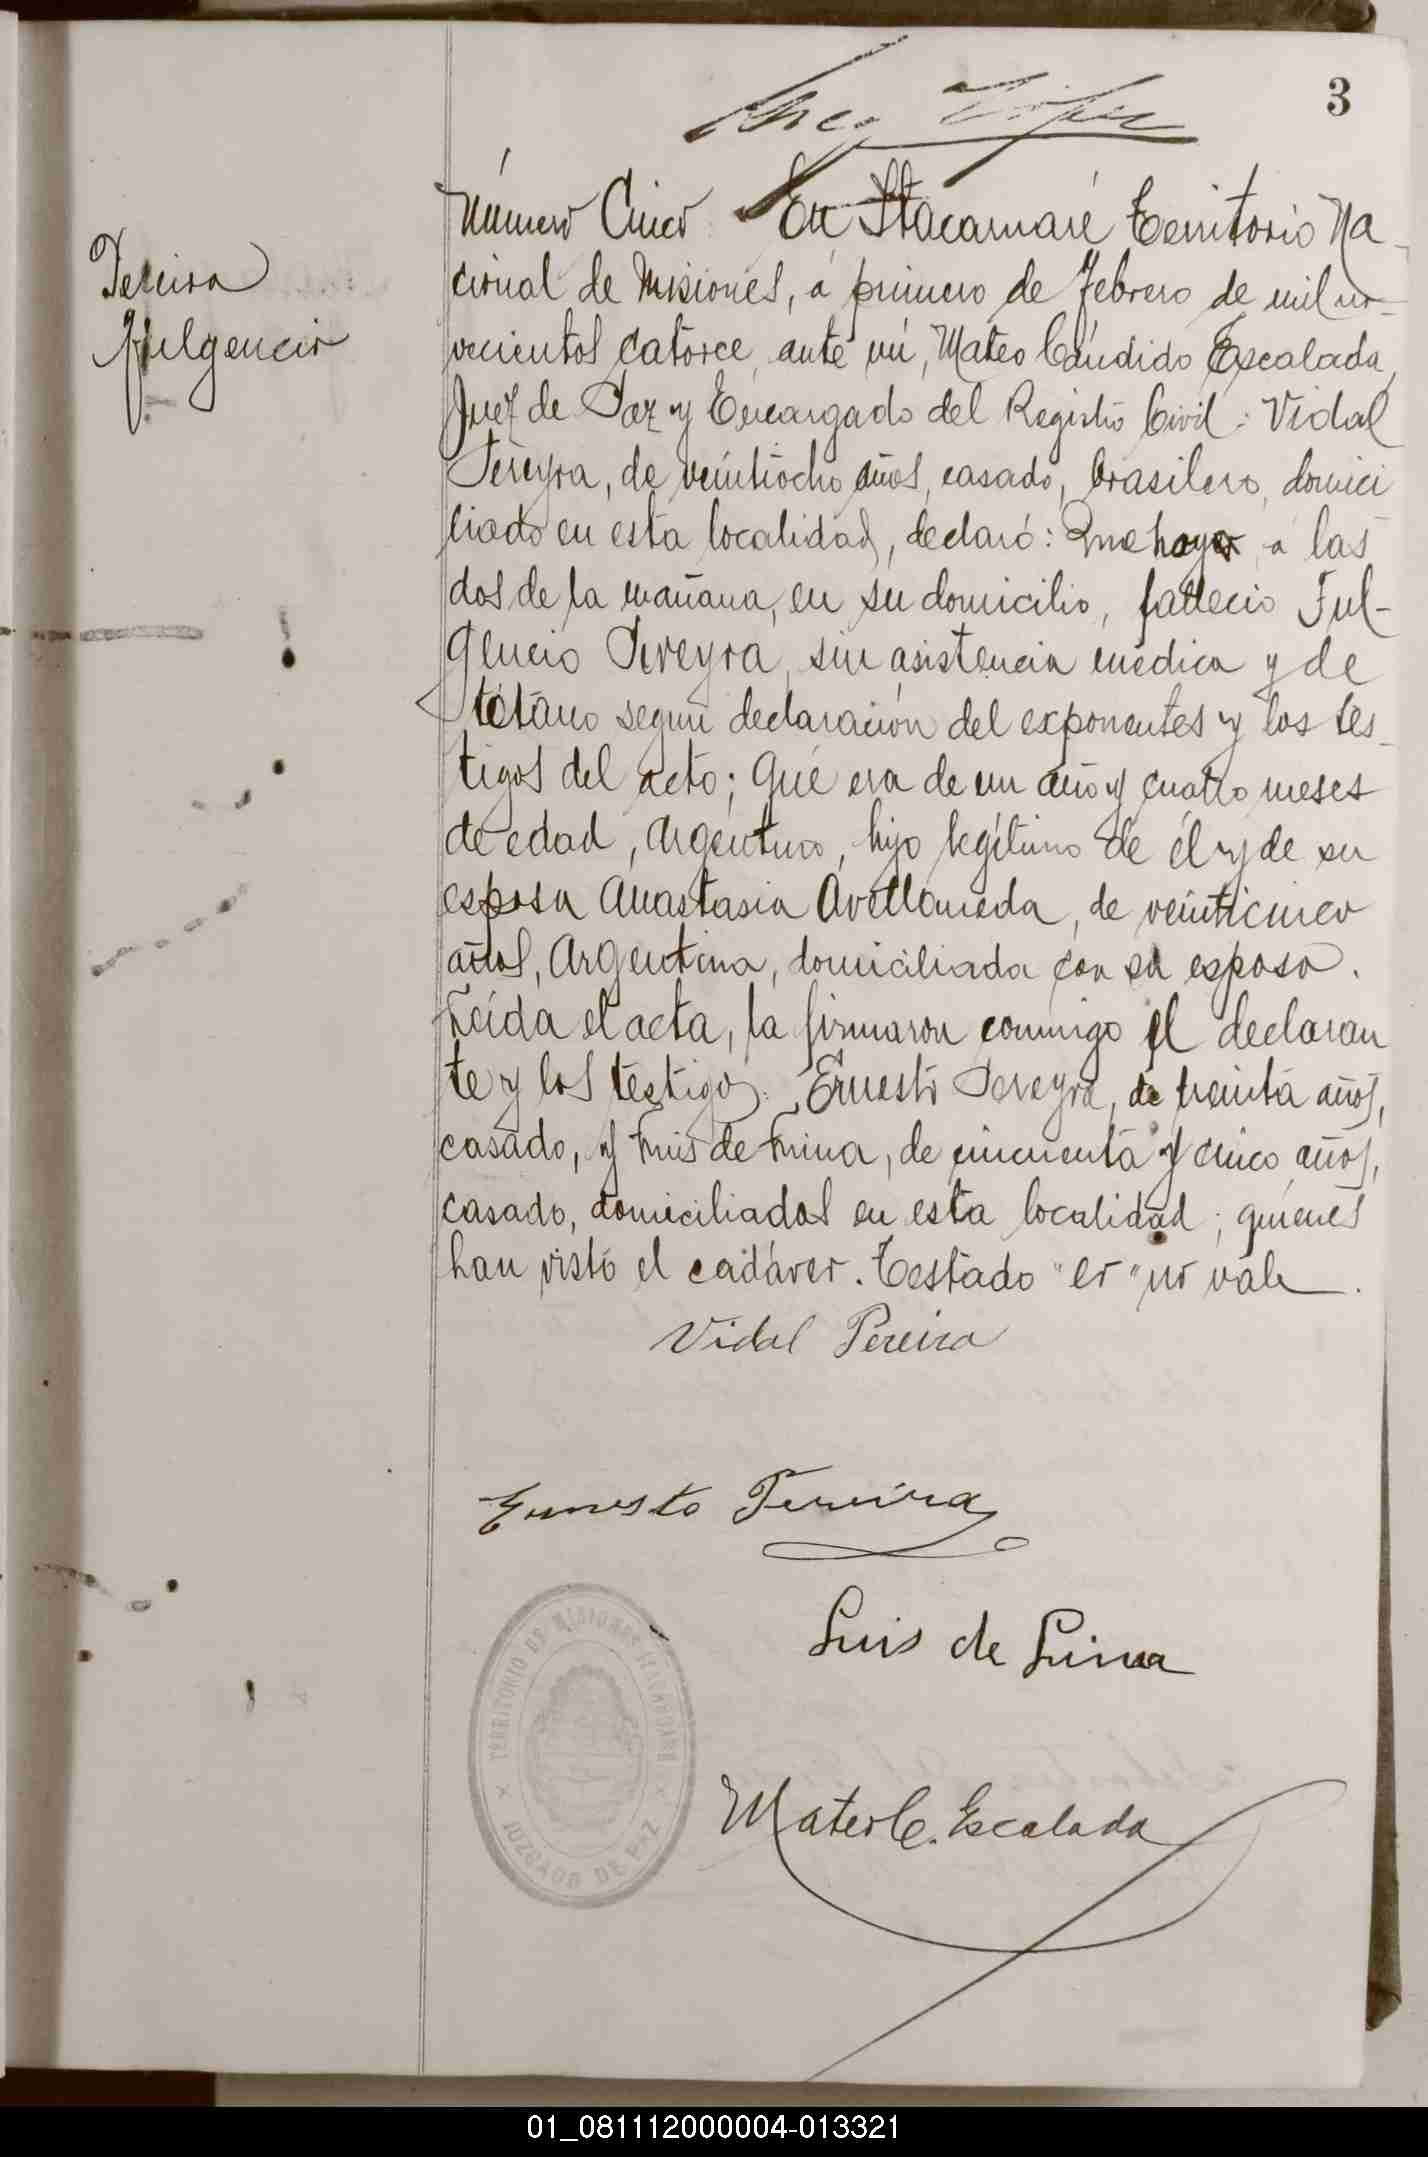 3
Pereira
Fulgencio
Número Cinco. En Itacaruaré Territorio Na-
cional de Misiones, á primero de Febrero de mil no-
vecientos catorce, ante mí, Mateo Cándido Escalada,
Juez de Paz y Encargado del Registro Civil: Vidal
Pereyra, de veintiocho años, casado, brasilero, domici
liado en esta localidad, declaró: Que hoy, á las
dos de la mañana, en su domicilio, falleció Ful-
gencio Pereyra, sin asistencia médica y de
tétano segun declaración del exponentes y los tes-
tigos del acto; Que era de un año y cuatro meses
de edad, Argentino, hijo legítimo de él y de su
esposa Anastasia Avellaneda, de veinticinco
años, Argentina, domiciliada con su esposo.
Leída el acta, la firmaron conmigo el declaran
te y los testigos: Ernesto Pereyra, de treinta años,
casado, y Luis de Lima, de cincuenta y cinco años,
casado, domiciliados en esta localidad; quienes
han visto el cadáver. Testado "er" no vale.
Vidal Pereira
Ernesto Pereira
Luis de Lima
TERRITORIO DE MISIONES ITACARUARÉ
JUZGADO DE PAZ
Mateo C. Escalada
01_081112000004-013321